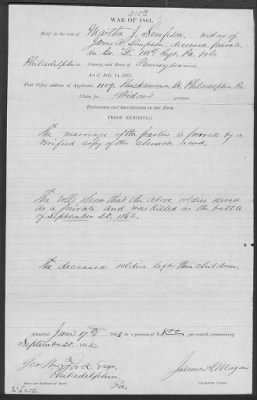 WAR OF 1861.
Brief in the case of Martha J. Simpson, widow of
James P. Simpson, deceased, private
in Co. D. Regt. Pa. Vols.
Philadelphia County and State of Pennsylvania
Act of July 14, 1862.
Post Office address of Applicant: 1119. St. Philadelphia Pa.
Claim for Widow
Declaration and Identification in due Form.
PROOF EXHIBITED.
The marriage of the parties is proved by a
verified copy of the church record.
The rolls show that the above soldier served
as a private and was killed in the battle
of September 20, 1862.
The deceased soldier left children
Admitted June 17th to a pension of $8.00 per month, commencing
September 20, 1862
Geo. W. Ford Esqr,
Philadelphia
Pa.